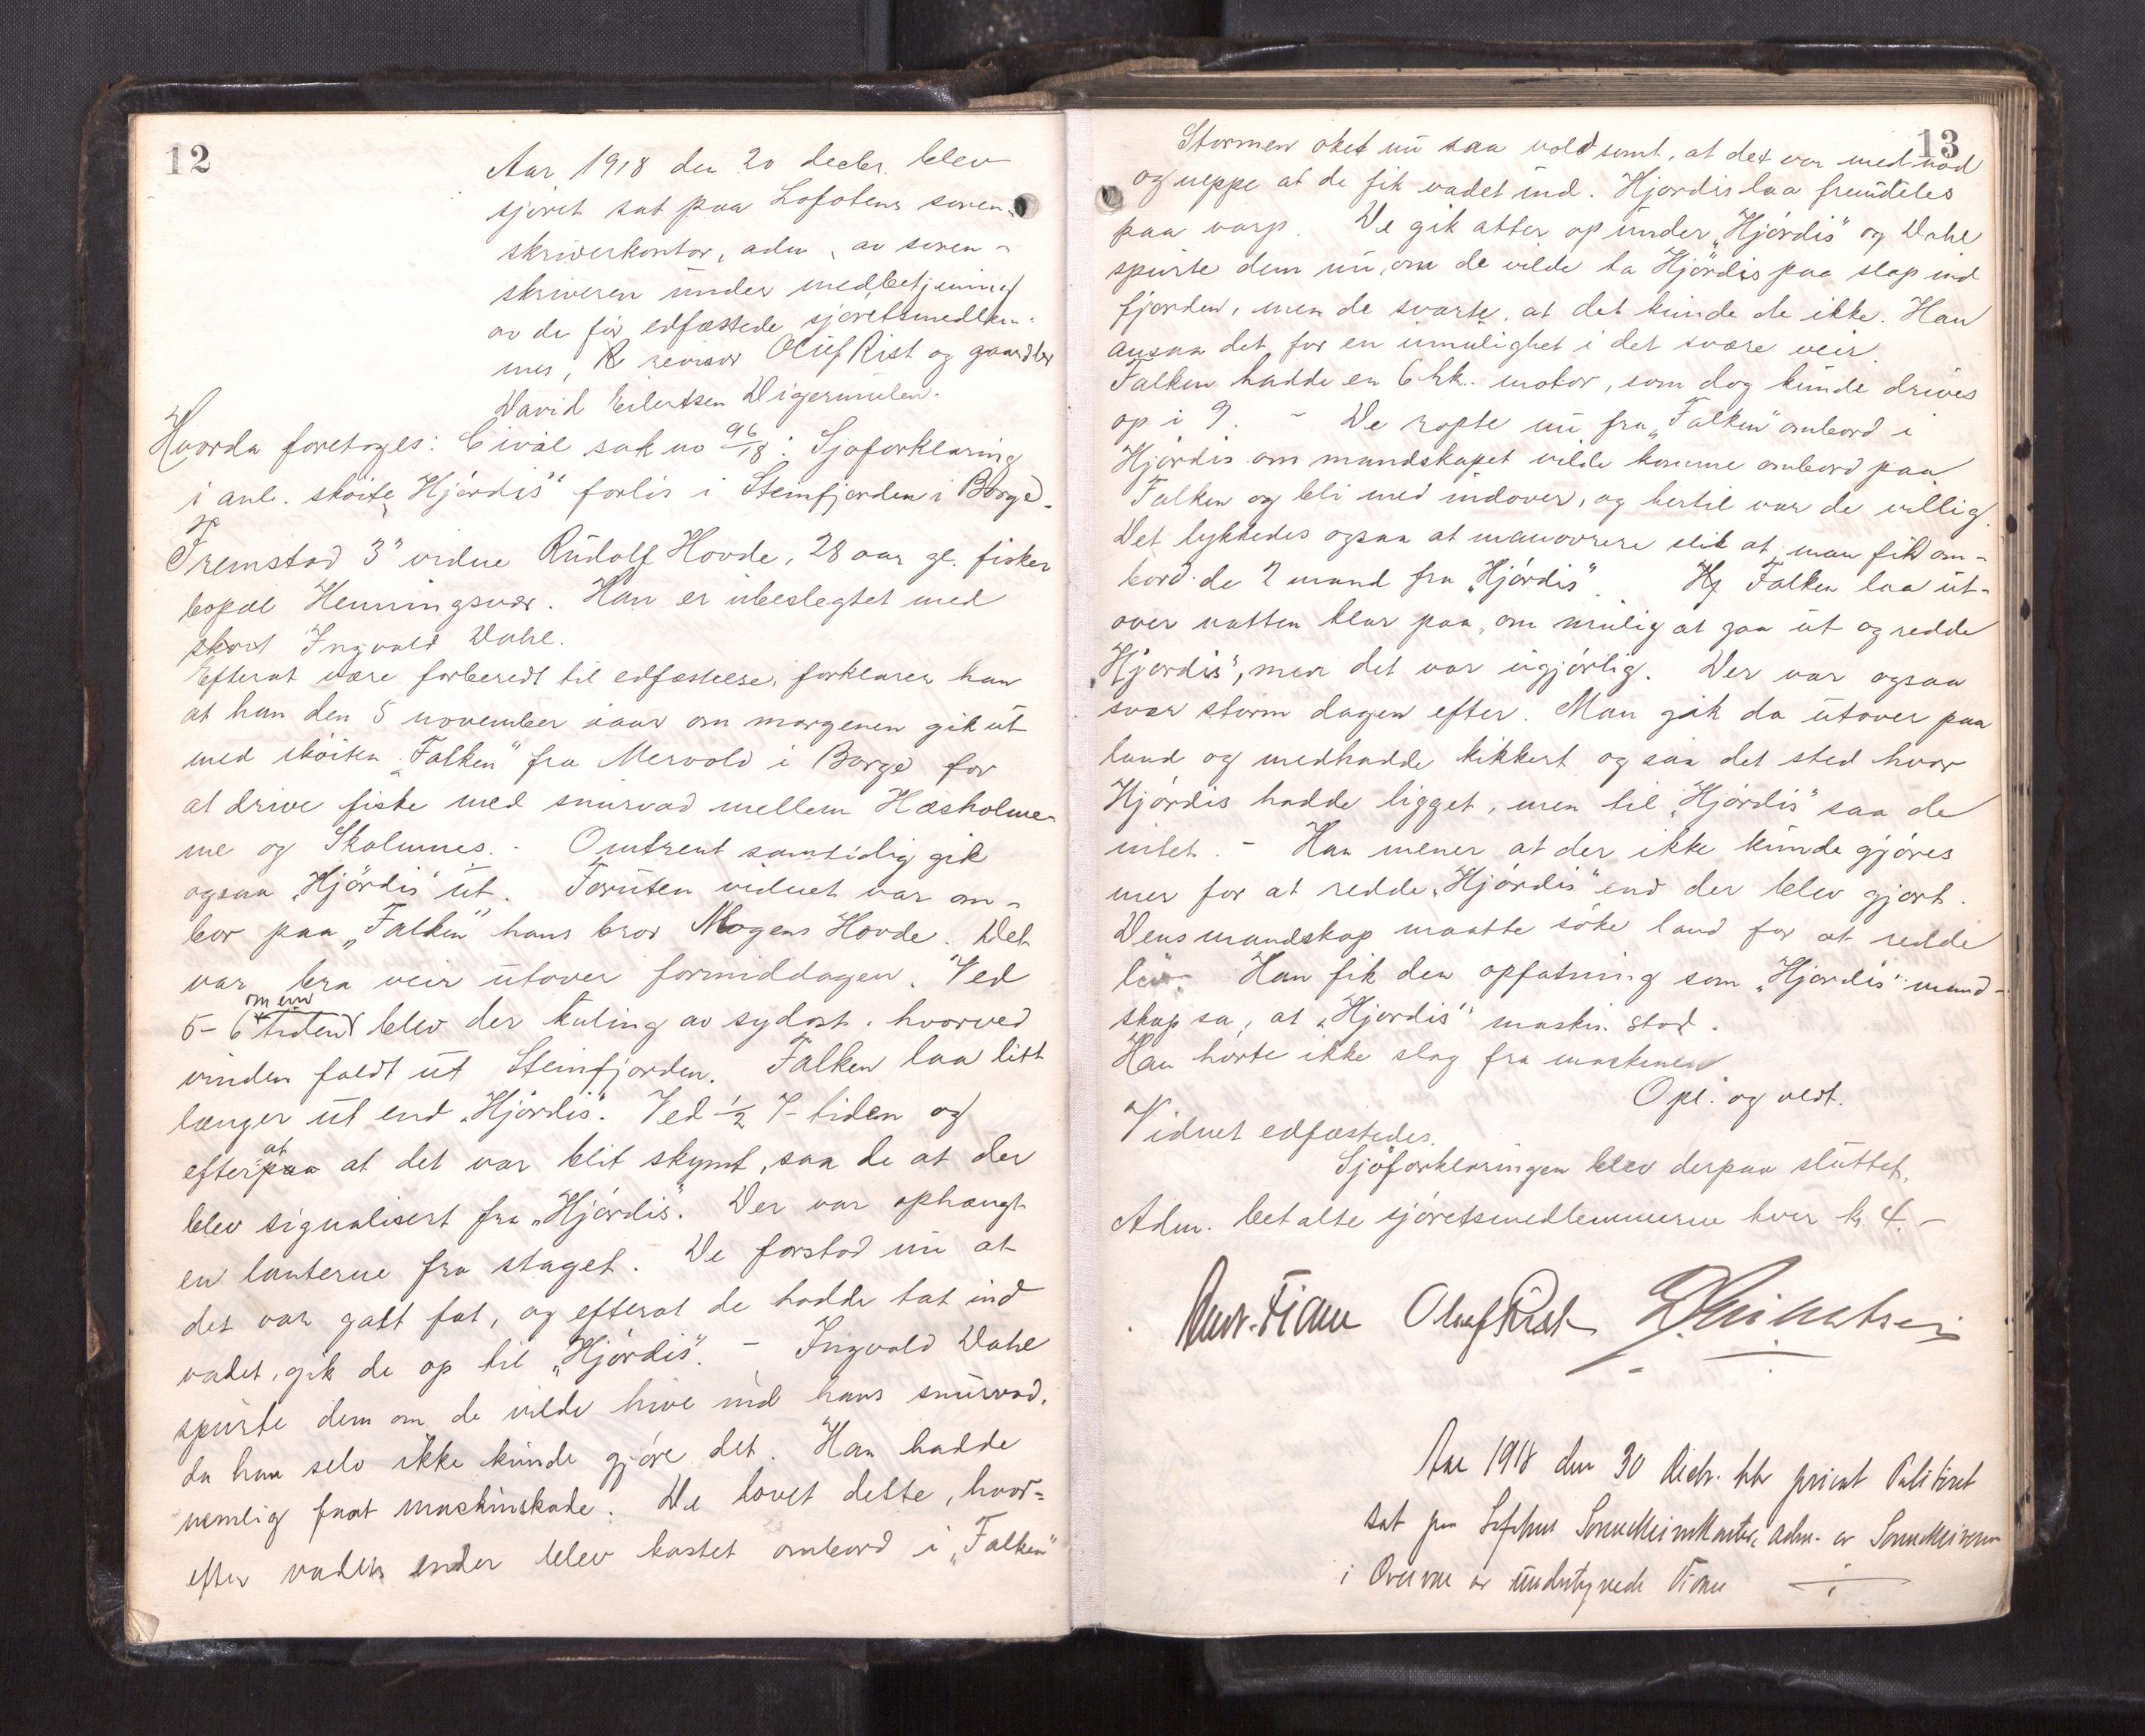 12
Aar 1918 den 20 decbr. blev
sjøret sat paa Lofotens soren-
skriverkontor, adm. av soren-
skriveren under medbetjening
av de før edfæstede sjøretsmedlem-
mer, R revisor Oluf Rist og gaardbr
David Eilertsen Digermulen.
Hvorda foretoges: Civil sak no 96/18: Sjøforklaring
i anl. skøite „Hjørdis“ forlis i Steinfjorden i Borge.
Fremstod 3' vidne Rudolf Hovde, 28 aar gl. fisker
bopæl Henningsvær. Han er ubeslegtet med
Ingvald Dahl.
Efterat være forberedt til edfæstelse, forklarer han
at han den 5 november iaar om morgenen gik ut
med skøiten „Falken“ fra Mervold i Borge for
at drive fiske med snurvad mellem Hæsholme-
ne og Skolmnes. - Omtrent samtidig gik
ogsaa „Hjørdis“ ut. Foruten vidnet var om-
bor paa „Falken“ hans bror Mogens Hovde. Det
var bra veir utover formiddagen. Ved
5-6 tiden blev der kuling av sydost, hvorved
vinden faldt ut Steinfjorden. Falken laa litt
længer ut end „Hjørdis“. Ved ½ 7-tiden og
efter at at det var blit skymt, saa de at der
blev signalisert fra „Hjørdis“. Der var ophængt
en lanterne fra staget. De forstod nu at
det var galt fat, og efterat de hadde tat ind
vadet, gik de op til „Hjørdis“. - Ingvald Dahl
spurte dem om de vilde hive ind hans snurvad,
da han selv ikke kunde gjøre det. Han hadde
nemlig faat maskinskade. De lovet dette, hvor-
efter vadets ender blev kastet ombord i „Falken“
13
Stormen øket nu saa voldsomt, at det var med nød
og neppe at de fik vadet ind. Hjørdis laa fremdeles
paa varp. De gik atter op under „Hjørdis“ og Dahl
spurte dem nu, om de vilde ta Hjørdis paa slep ind
fjorden, men de svarte, at det kunde de ikke. Han
ansaa det for en umulighet i det svære veir.
Falken hadde en 6 hk. motor, som dog kunde drives
op i 9. - De ropte nu fra „Falken“ ombord i
Hjørdis om mandskapet vilde komme ombord paa
Falken og bli med indover, og hertil var de villig.
Det lykkedes ogsaa at manøvrere slik at man fik om-
bord de 2 mand fra „Hjørdis“. Falken laa ut-
over natten klar paa, om mulig at gaa ut og redde
„Hjørdis“, men det var ugjørlig. Der var ogsaa
svær storm dagen efter. Man gik da utover paa
land og medhadde kikkert og saa det sted hvor
Hjørdis hadde ligget, men til „Hjørdis“ saa de
intet. - Han mener at der ikke kunde gjøres
mer for at redde „Hjørdis“ end der blev gjort.
Dens mandskap maatte søke land for at redde
livet. Han fik den opfatning som „Hjørdis“ mand-
skap sa, at „Hjørdis“ maskin stod.
Han hørte ikke slag fra maskinen
Opl. og vedt.
Vidnet edfæstedes.
Sjøforklaringen blev derpaa sluttet.
Adm. betalte sjøretsmedlemmerne hver kr. 4.-
Oluf Rist D Eilertsen
Aar 1918 den 30 Decbr. blev privat Politiret
sat paa Lofotens Sorenskriverkontor, adm. av Sorenskriveren
i Overvær av undertegnede